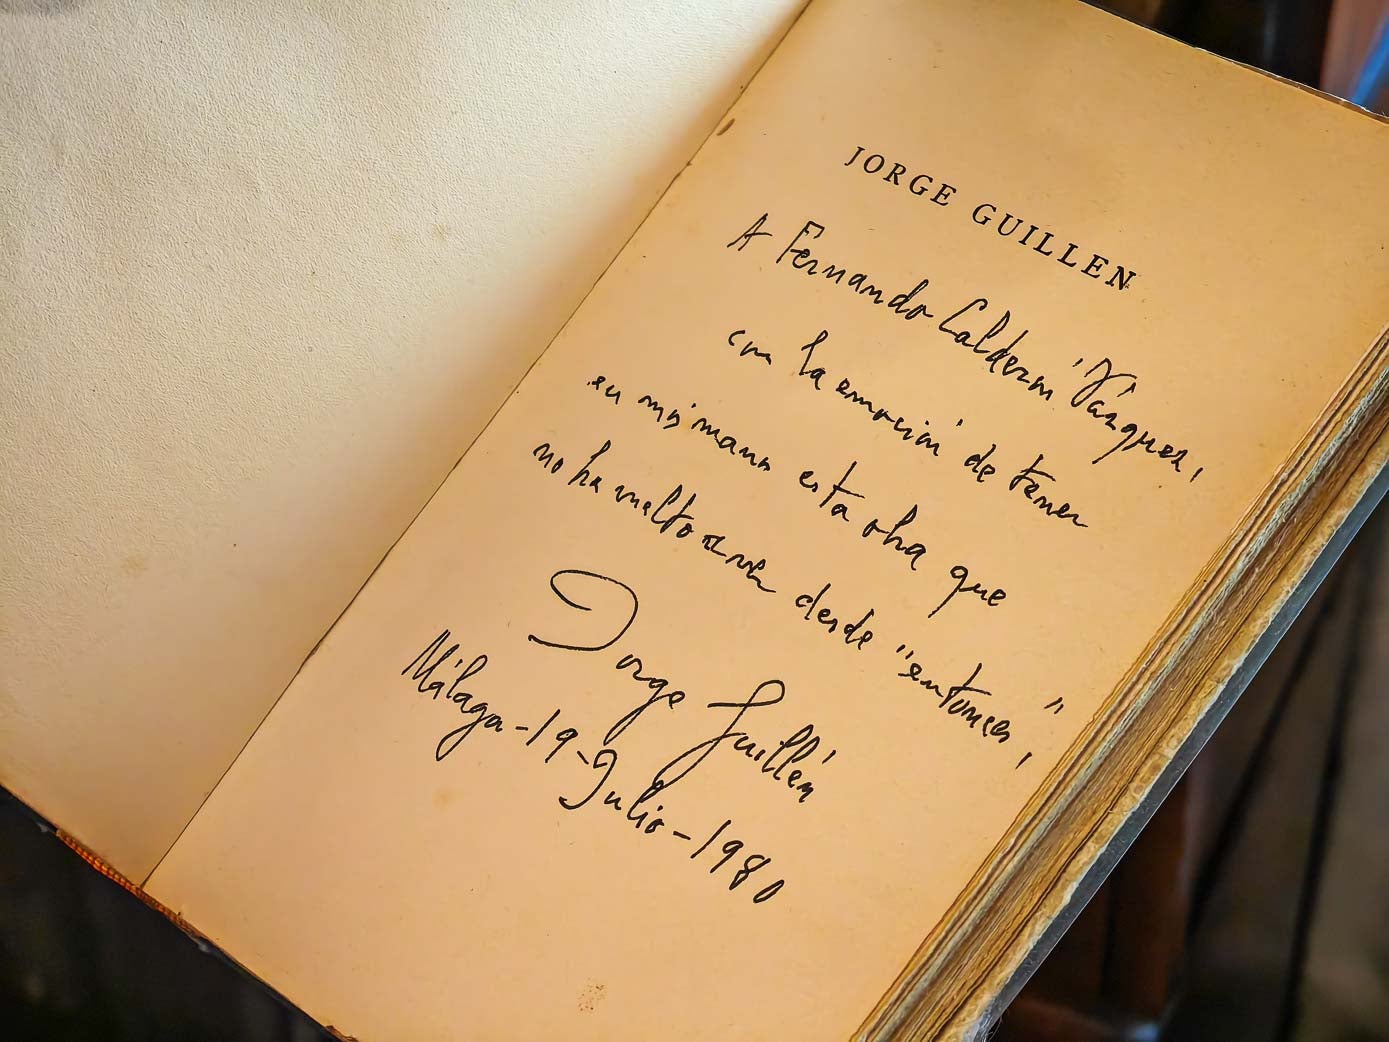 JORGE GUILLEN
A Fernando Calderón Vázquez,
con la emoción de tener
en mis manos esta obra que
no ha vuelto a ver desde "entonces",
Jorge Guillén
Málaga - 19 - Julio - 1980